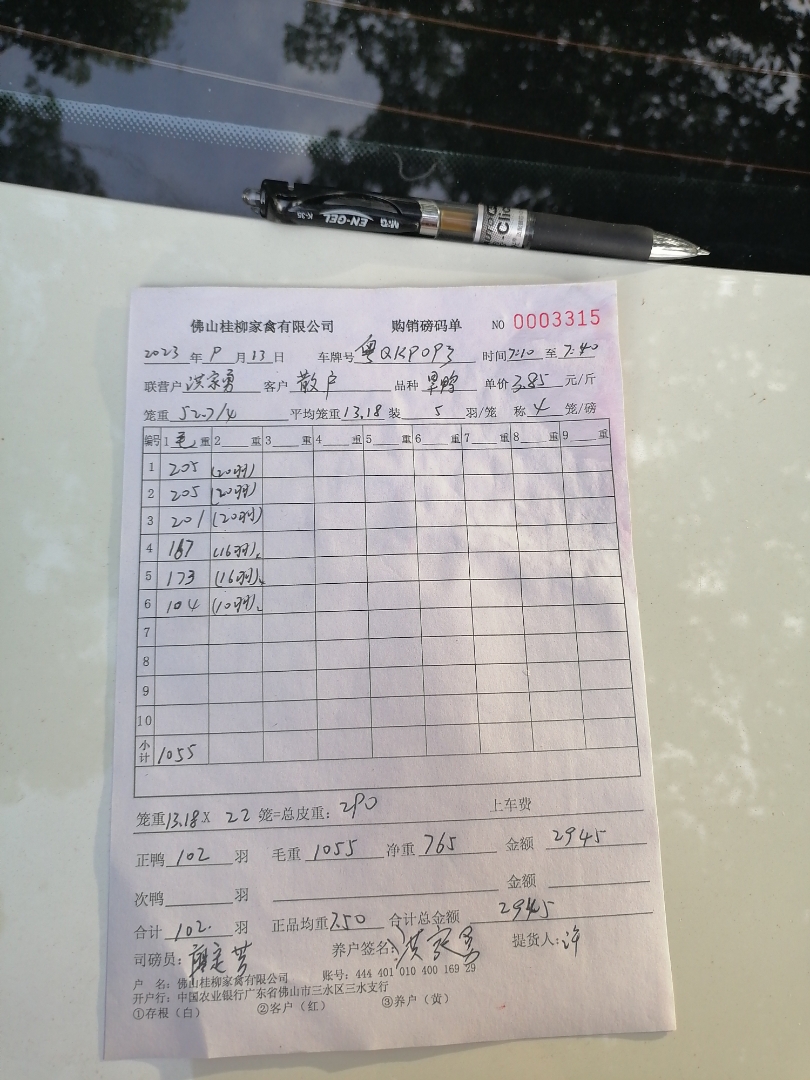 M&G EN-GEL K-35
佛山桂柳家禽有限公司 购销磅码单 NO 0003315
2023 年 9 月 13 日 车牌号 粤QKP0P3 时间 7:10 至 7:40
联营户 洪家勇 客户 散户 品种 单价 3.85 元/斤
笼重 52.7/4 平均笼重 13.18 装 5 羽/笼 称 4 笼/磅
编号 1 毛 重 2 重 3 重 4 重 5 重 6 重 7 重 8 重 9 重
1 205 (20羽)
2 205 (20羽)
3 201 (20羽)
4 167 (16羽)
5 173 (16羽)
6 104 (10羽)
7
8
9
10
小计 1055
笼重 13.18 X 22 笼=总皮重: 290 上车费
正鸭 102 羽 毛重 1055 净重 765 金额 2945
次鸭 羽 金额
合计 102 羽 正品均重 7.50 合计总金额 2945
司磅员: 养户签名: 洪家勇 提货人: 许
户 名: 佛山桂柳家禽有限公司 账号: 444 401 010 400 169 29
开户行: 中国农业银行广东省佛山市三水区三水支行
①存根（白） ②客户（红） ③养户（黄）